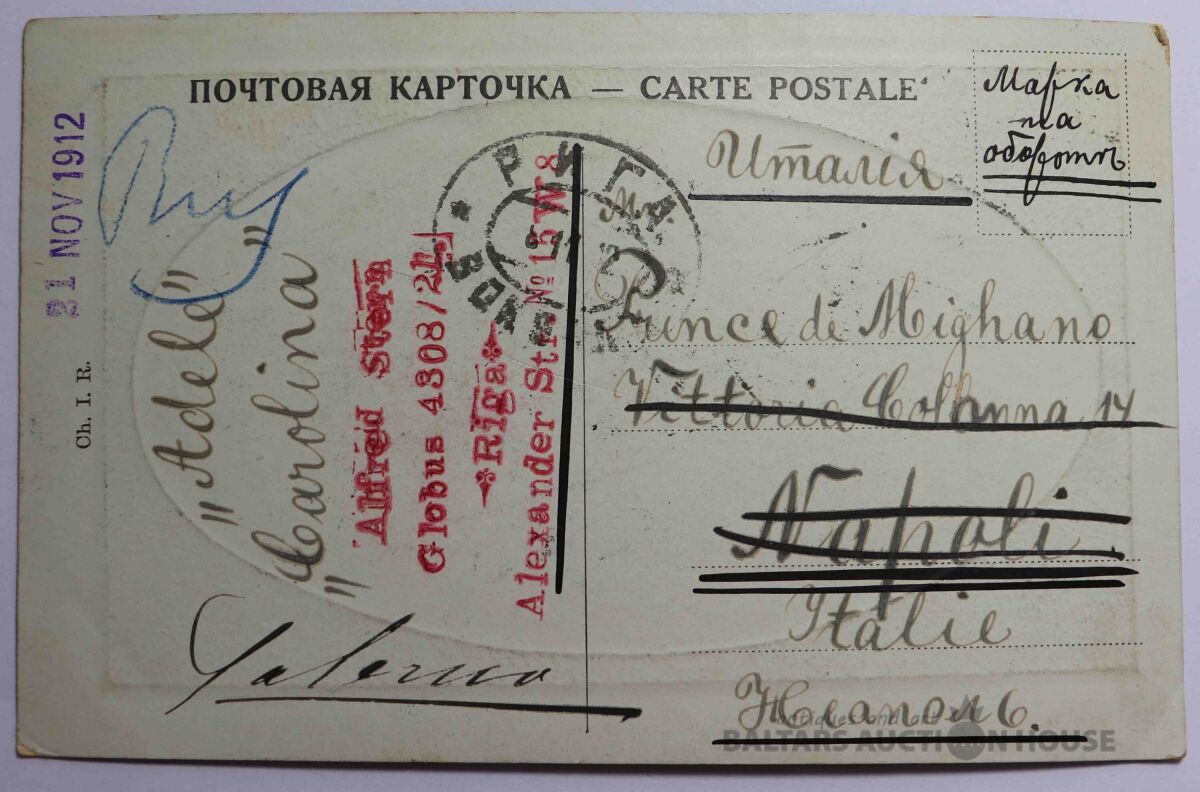 ПОЧТОВАЯ КАРТОЧКА — CARTE POSTALE
Марка
на
оборотѣ
Италія
Prince de Mighano
Vittoria Colonna 14
Napoli
Italie
Неаполь.
21 NOV 1912
Ch. I. R.
"Adele"
"Carolina"
Alfred Stern
Globus 4308/21
Riga
Alexander Str. № 15 W 8
РИГА
Salerno
antiques and art
BALTARS AUCTION HOUSE